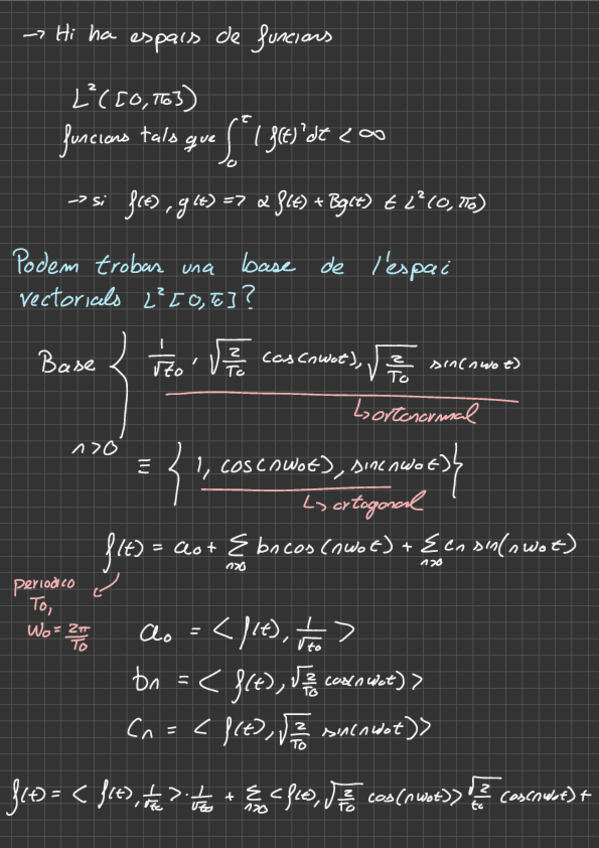 → Hi ha espais de funcions
L²([0,T0])
funcions tals que ∫₀^τ |f(t)²dt < ∞
→ si f(t), g(t) => α f(t) + Bg(t) ∈ L²(0, T0)
Podem trobar una base de l'espai
vectorials L²[0,t]?
Base { 1/√t0 , √(2/T0) cos(nw0t), √(2/T0) sin(nw0t)
↳ ortonormal
n>0
≡ { 1, cos(nw0t), sin(nw0t)}
↳ ortogonal
f(t) = a0 + ∑n>0 bn cos(nw0t) + ∑n>0 cn sin(nw0t)
periodico
T0,
w0 = 2π/T0
a0 = < f(t), 1/√t0 >
bn = < f(t), √(2/T0) cos(nw0t) >
Cn = < f(t), √(2/T0) sin(nw0t)>
f(t) = < f(t), 1/√t0 > · 1/√t0 + ∑n>0 < f(t), √(2/T0) cos(nw0t)> √(2/t0) cos(nw0t) +